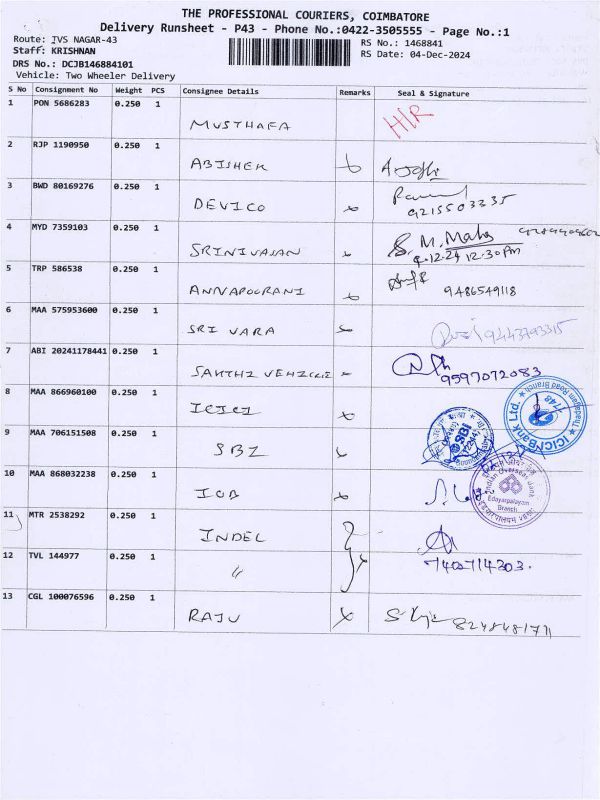 THE PROFESSIONAL COURIERS, COIMBATORE
Delivery Runsheet - P43 - Phone No.:0422-3505555 - Page No.:1
Route: TVS NAGAR-43
RS No.: 1468841
Staff: KRISHNAN
RS Date: 04-Dec-2024
DRS No.: DCJB146884101
Vehicle: Two Wheeler Delivery
S No Consignment No Weight PCS Consignee Details Remarks Seal & Signature
1 PON 5686283 0.250 1 MUSTHAFA
2 RJP 1190950 0.250 1 ABISHEK
3 BWD 80169276 0.250 1 DEVICO 9215503335
4 MYD 7359103 0.250 1 SRINIVASAN M. Maha
4-12-24 12.30pm
5 TRP 586538 0.250 1 ANNAPOORANI 9486549118
6 MAA 575953600 0.250 1 SRI VARA 9443793315
7 ABI 20241178441 0.250 1 SAKTHI VEHICLE 9597072083
8 MAA 866960100 0.250 1 ICICI ICICI Bank Ltd. 748
9 MAA 706151508 0.250 1 SBI SBI
10 MAA 868032238 0.250 1 IOB Indian Overseas Bank
Edayarpalayam
Branch
11 MTR 2538292 0.250 1 INDEL
12 TVL 144977 0.250 1 〃 7402714303.
13 CGL 100076596 0.250 1 RAJU 8248481771